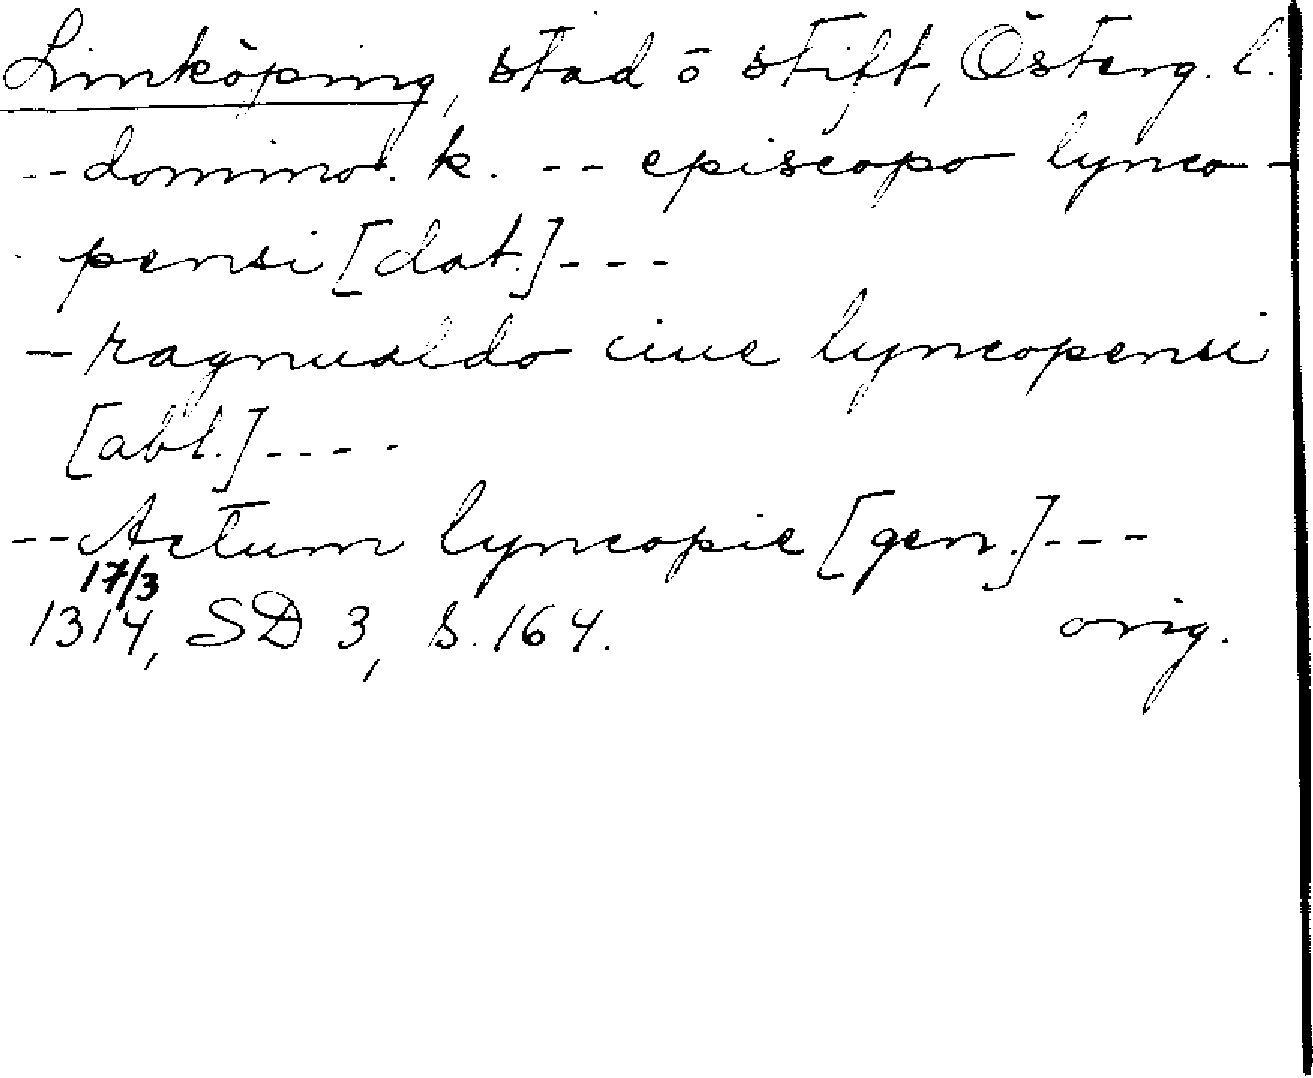 Linköping, stad o stift, Österg. l.
-- domino. k. -- episcopo lynco-
pensi [dat.] ---
- ragnualdo ciue lyncopensi
[abl.] ----
-- Actum lyncopie [gen.] ---
17/3
1314, SD 3, s. 164. orig.